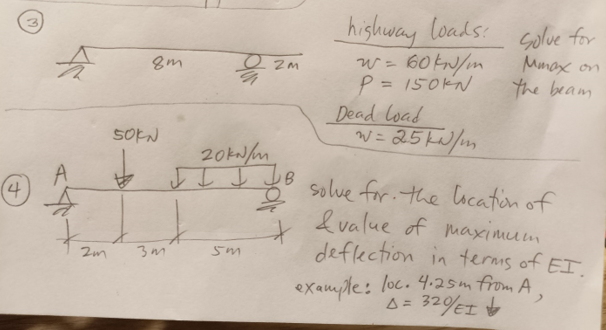 ③
8m
2m
highway loads:
w = 60 kN/m
P = 150 KN
solve for
Mmax on
the beam
Dead Load
w = 25 kN/m
④
50KN
20kN/m
A
B
2m
3m
5m
solve for. the location of
& value of maximum
deflection in terms of EI.
example: loc. 4.25m from A,
Δ = 320/EI ↓